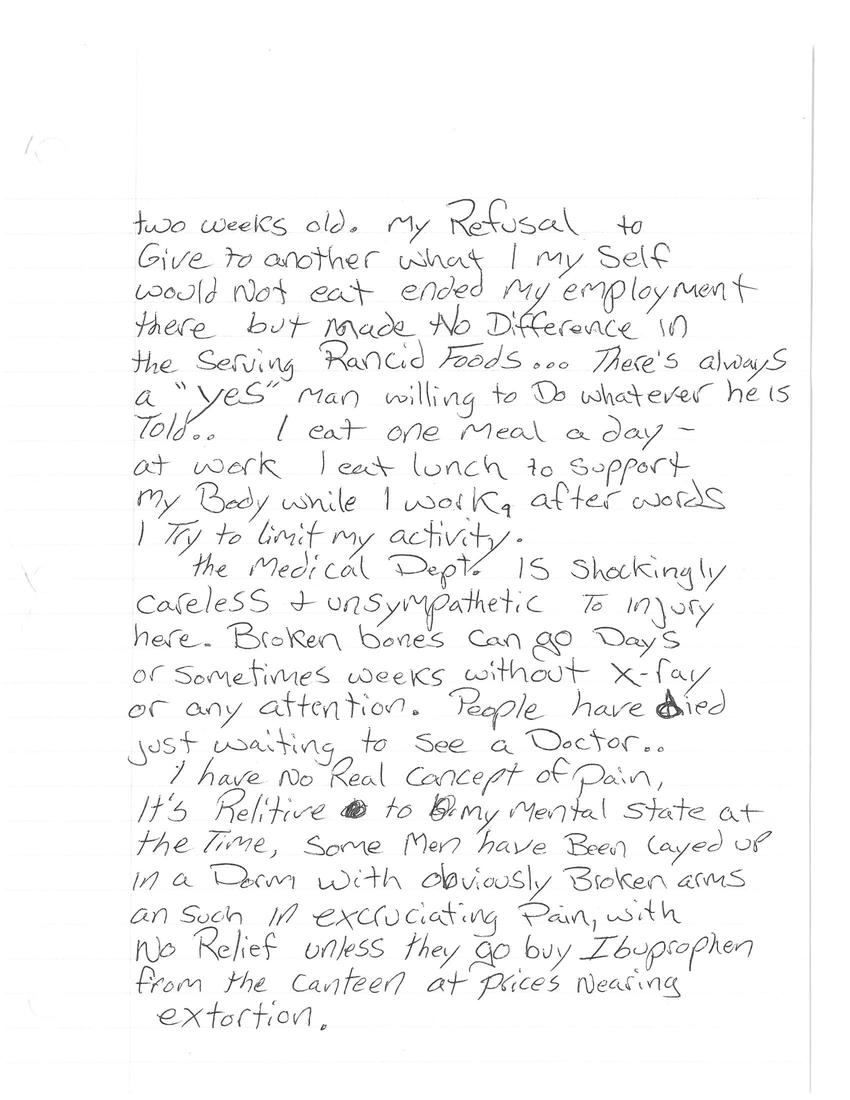 two weeks old. My Refusal to
Give to another what I my Self
would Not eat ended my employment
there but made No Difference in
the Serving Rancid Foods... There's always
a "yes" man willing to Do whatever he is
Told.. I eat one meal a day -
at work I eat lunch to support
my Body while I work, after words
I Try to limit my activity.
the Medical Dept. IS Shockingly
careless & unsympathetic To injury
here. Broken bones can go Days
or sometimes weeks without x-ray
or any attention. People have Died
just waiting to see a Doctor..
I have No Real concept of Pain,
It's Relitive to my Mental State at
the Time, Some Men have Been layed up
in a Dorm with obviously Broken arms
an such in excruciating Pain, with
No Relief unless they go buy Ibuprophen
from the canteen at prices Nearing
extortion.